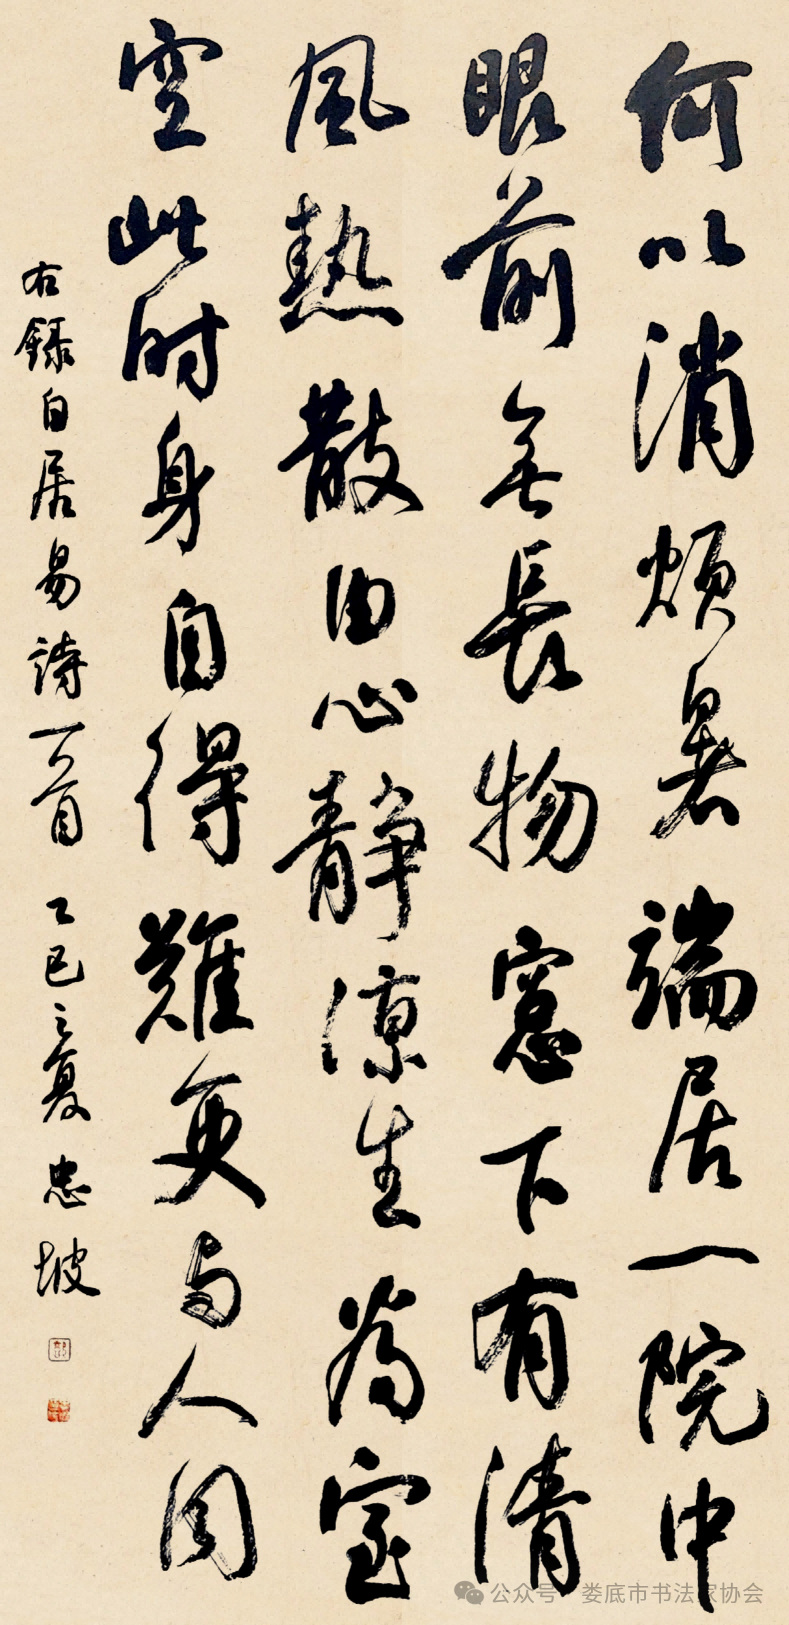 何以消煩暑端居一院中
眼前無長物窓下有清
風熱散由心静涼生為室
空此时身自得難更与人同
右録白居易詩一首 乙巳之夏 忠坡
公众号·娄底市书法家协会